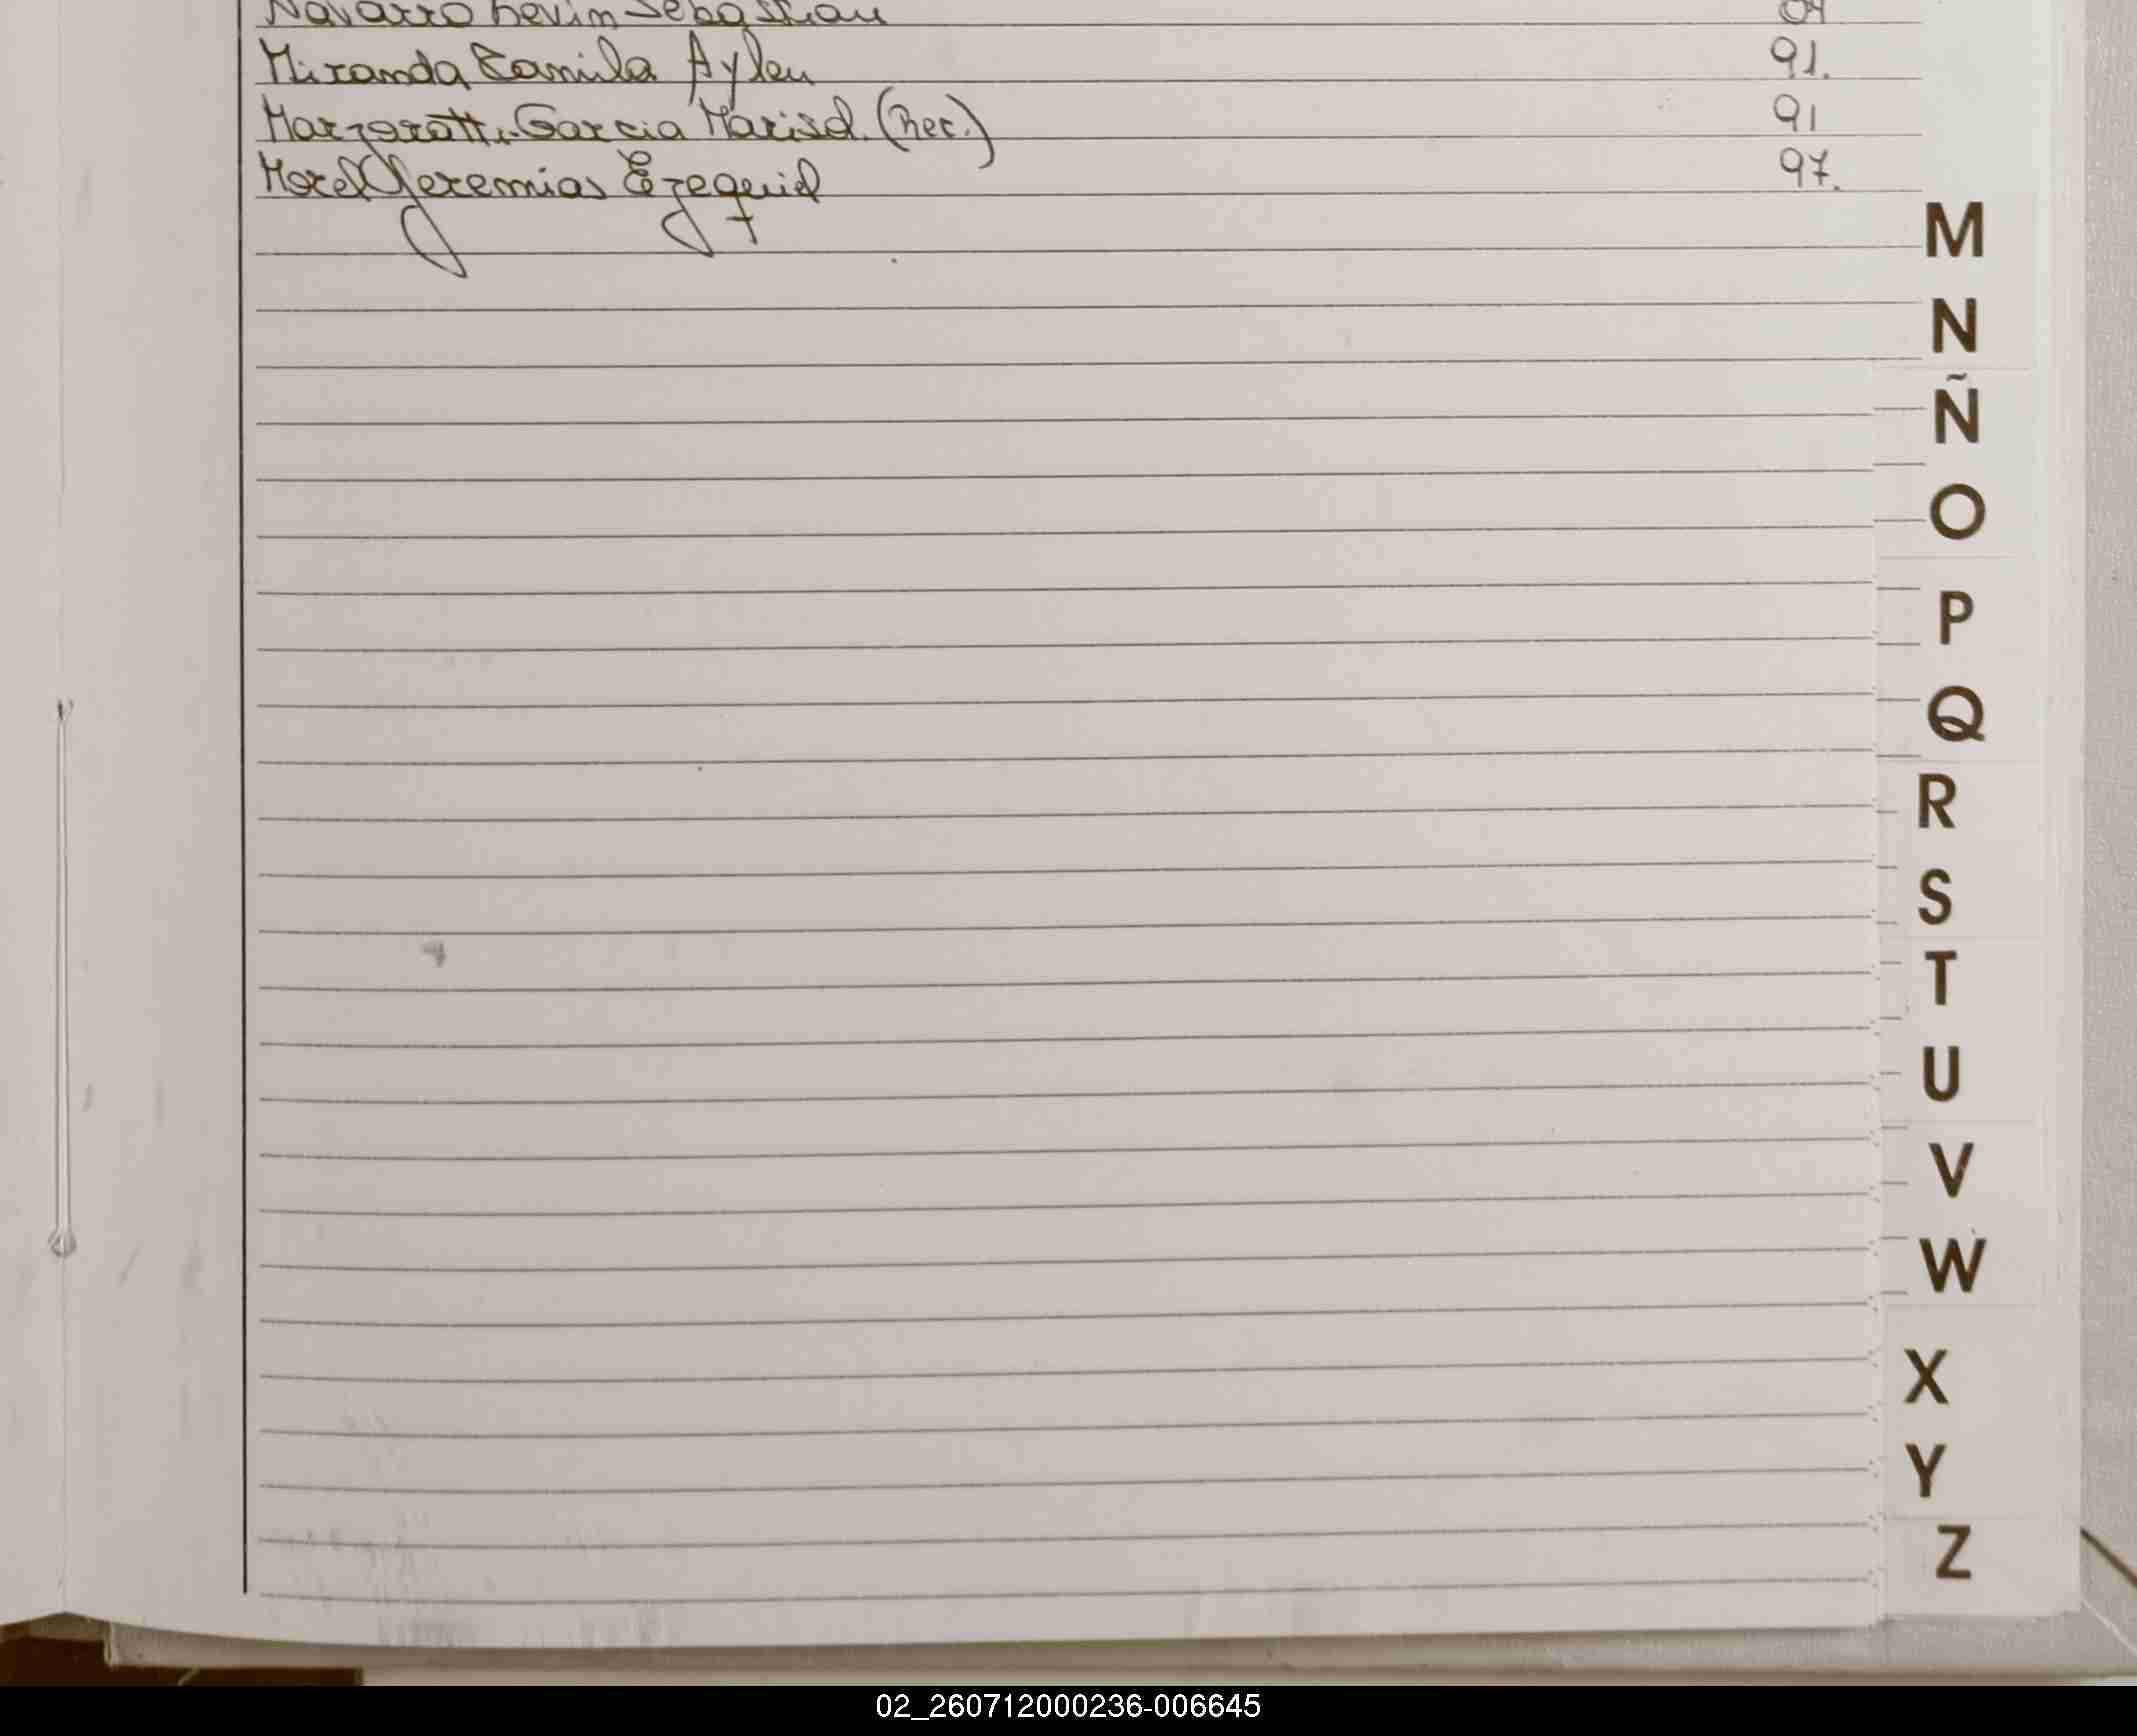 Navarro Kevin Sebastian 84
Miranda Camila Aylen 91.
Marzoratti Garcia Marisol (Rec.) 91
Morel Jeremias Ezequiel 97.
M
N
Ñ
O
P
Q
R
S
T
U
V
W
X
Y
Z
02_260712000236-006645